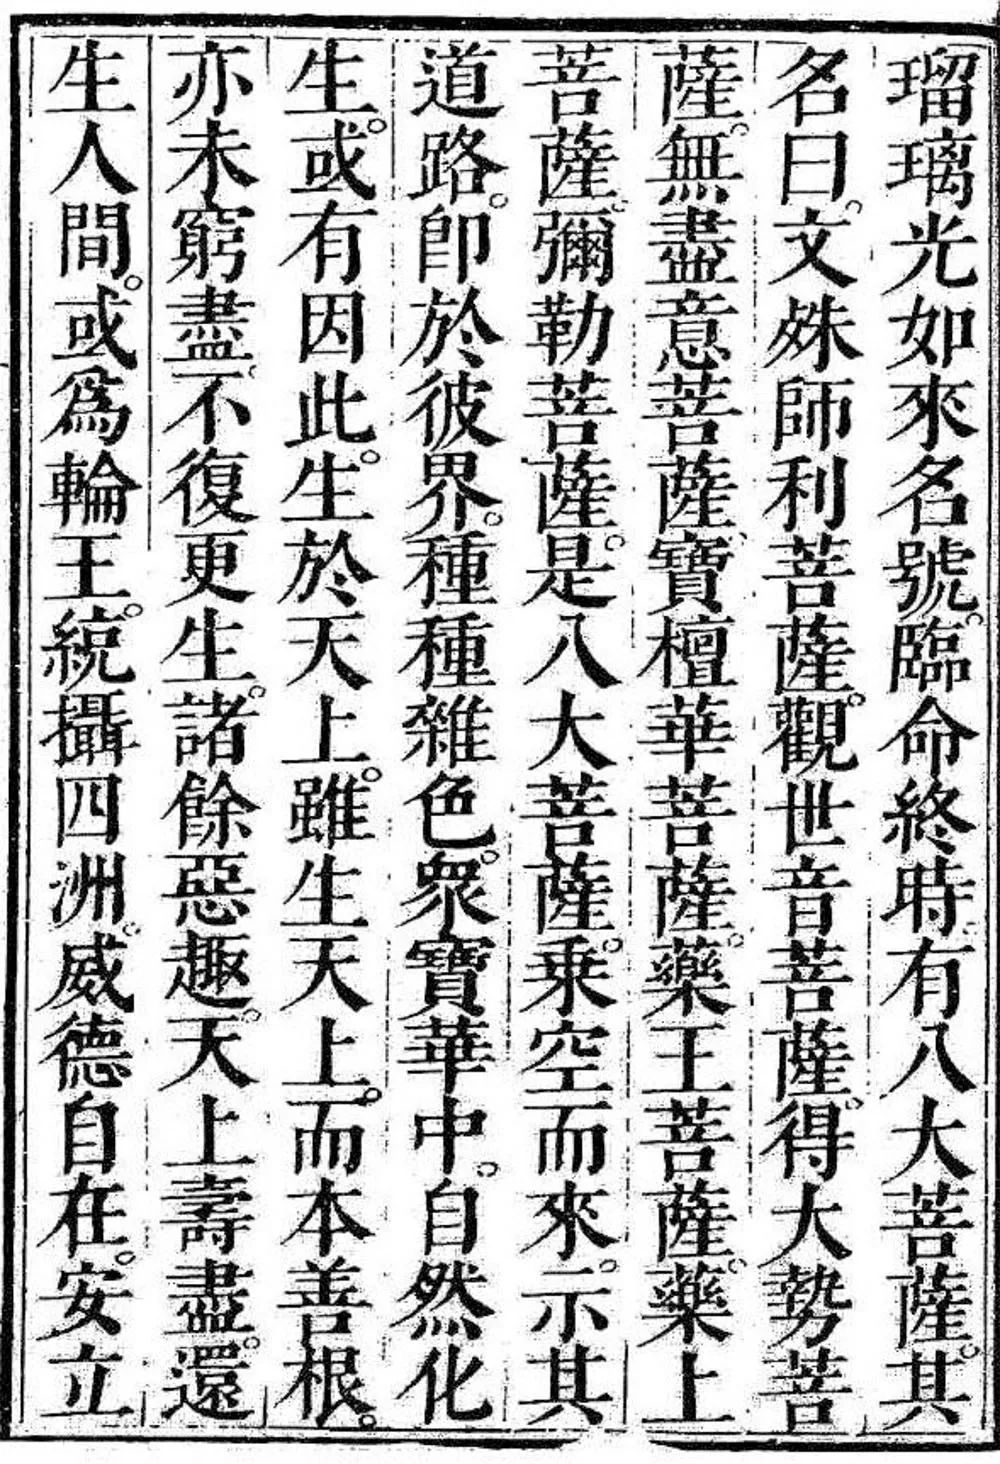 瑠璃光如來名號。臨命終時。有八大菩薩。其
名曰。文殊師利菩薩。觀世音菩薩。得大勢菩
薩。無盡意菩薩。寶檀華菩薩。藥王菩薩。藥上
菩薩。彌勒菩薩。是八大菩薩。乗空而來。示其
道路。卽於彼界。種種雜色。衆寶華中。自然化
生。或有因此。生於天上。雖生天上。而本善根。
亦未窮盡。不復更生。諸餘惡趣。天上壽盡。還
生人間。或爲輪王。統攝四洲。威德自在。安立